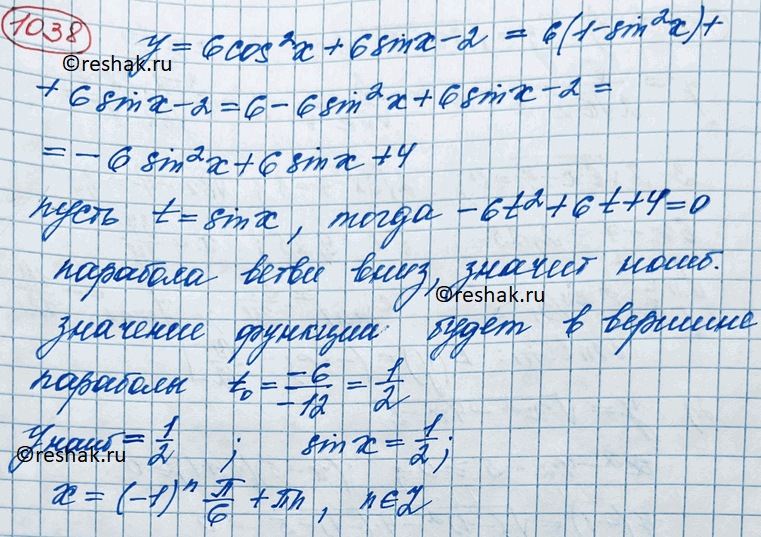 1038
©reshak.ru
y = 6cos²x + 6sinx - 2 = 6(1-sin²x)+
+ 6sinx - 2 = 6 - 6sin²x + 6sinx - 2 =
©reshak.ru
= -6sin²x + 6sinx + 4
пусть t = sinx, тогда -6t² + 6t + 4 = 0
парабола ветви вниз, значит наиб.
©reshak.ru
значение функции будет в вершине
параболы t₀ = -6/-12 = 1/2
yнаиб = 1/2 ; sinx = 1/2;
©reshak.ru
x = (-1)ⁿ π/6 + πn, n∈Z
©reshak.ru